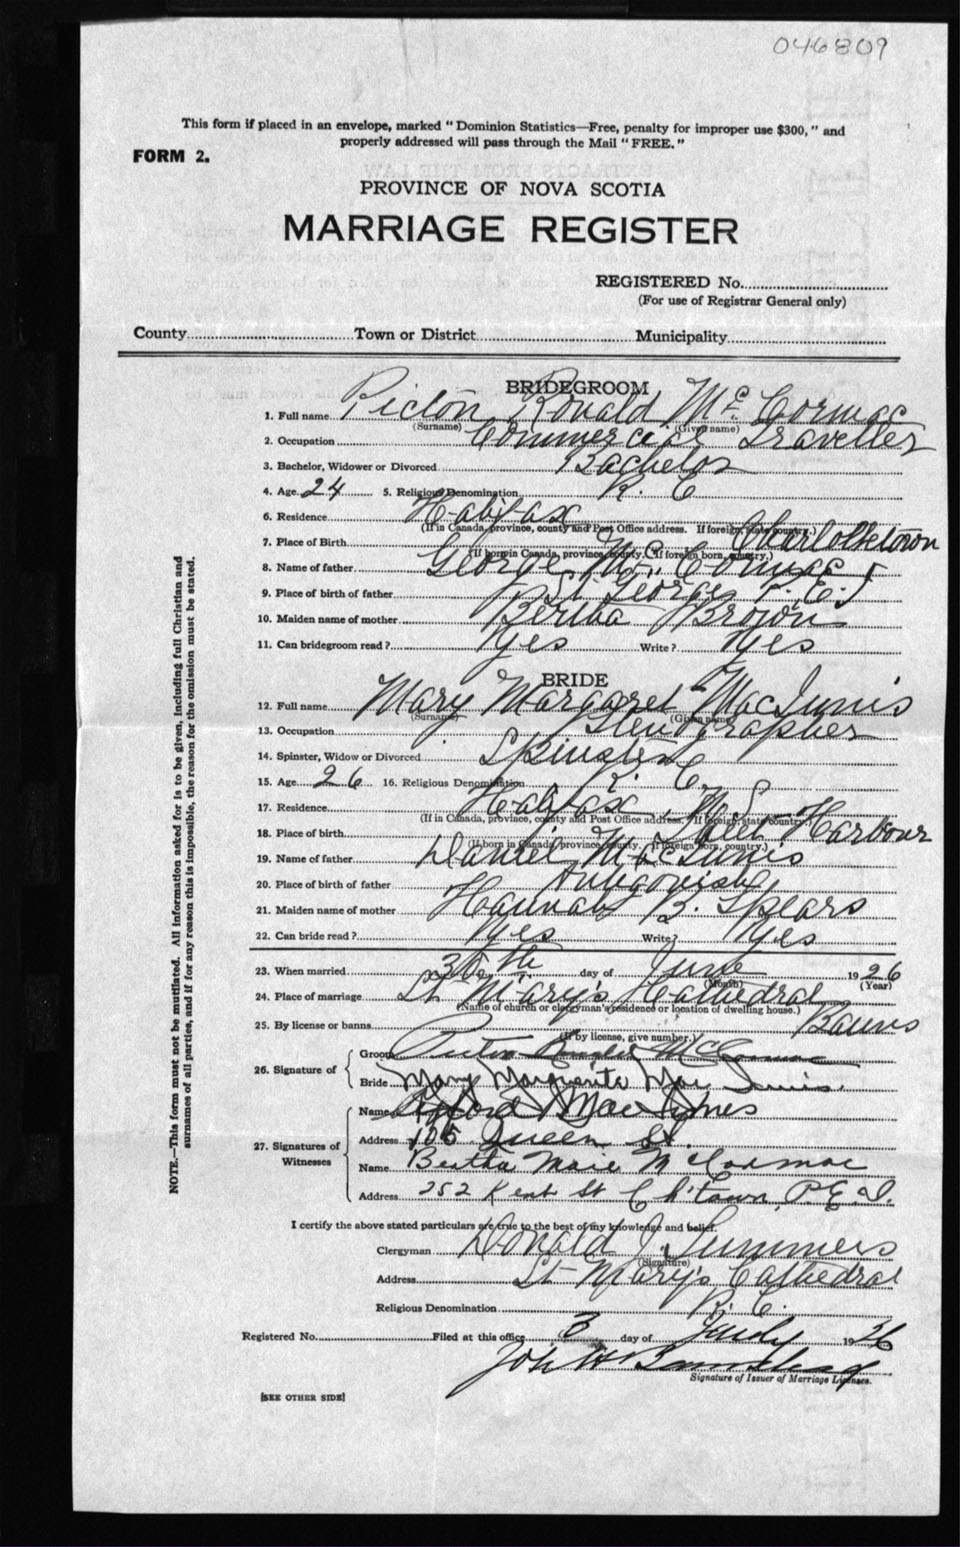 046809
This form if placed in an envelope, marked "Dominion Statistics—Free, penalty for improper use $300," and
properly addressed will pass through the Mail "FREE."
FORM 2.
PROVINCE OF NOVA SCOTIA
MARRIAGE REGISTER
REGISTERED No.
(For use of Registrar General only)
County Town or District Municipality
BRIDEGROOM
1. Full name Picton Ronald McCormac
(Surname) (Given name)
2. Occupation Commercial Traveller
3. Bachelor, Widower or Divorced Bachelor
4. Age 24 5. Religious Denomination R. C
6. Residence Halifax
(If in Canada, province, county and Post Office address. If foreign, state country.)
7. Place of Birth Charlottetown
(If born in Canada, province, county. If foreign born, country.)
8. Name of father George McCormac
9. Place of birth of father St Georges P. E. I
10. Maiden name of mother Bertha Brown
11. Can bridegroom read? Yes Write? Yes
BRIDE
12. Full name Mary Margaret MacInnis
(Surname) (Given name)
13. Occupation Stenographer
14. Spinster, Widow or Divorced Spinster
15. Age 26 16. Religious Denomination R. C.
17. Residence Halifax N. S
(If in Canada, province, county and Post Office address. If foreign, state country.)
18. Place of birth Sheet Harbour
(If born in Canada, province, county. If foreign born, country.)
19. Name of father Daniel MacInnis
20. Place of birth of father Antigonish
21. Maiden name of mother Hannah B. Spears
22. Can bride read? Yes Write? Yes
23. When married 30th day of June 1926
(Month) (Year)
24. Place of marriage St Mary's Cathedral
(Name of church or clergyman's residence or location of dwelling house.)
25. By license or banns Banns
(If by license, give number.)
26. Signature of Groom Picton Ronald McCormac
Bride Mary Marguerite MacInnis
27. Signatures of Witnesses
Name MacInnes
Address 106 Queen St.
Name Bertha Marie McCormac
Address 252 Kent St Ch'town, P.E.I.
I certify the above stated particulars are true to the best of my knowledge and belief.
Clergyman Donald J. Summers
(Signature)
Address St Mary's Cathedral
Religious Denomination R. C.
Registered No. Filed at this office 3 day of July 1926
Signature of Issuer of Marriage Licenses.
[SEE OTHER SIDE]
NOTE.—This form must not be mutilated. All information asked for is to be given, including full Christian and
surnames of all parties, and if for any reason this is impossible, the reason for the omission must be stated.